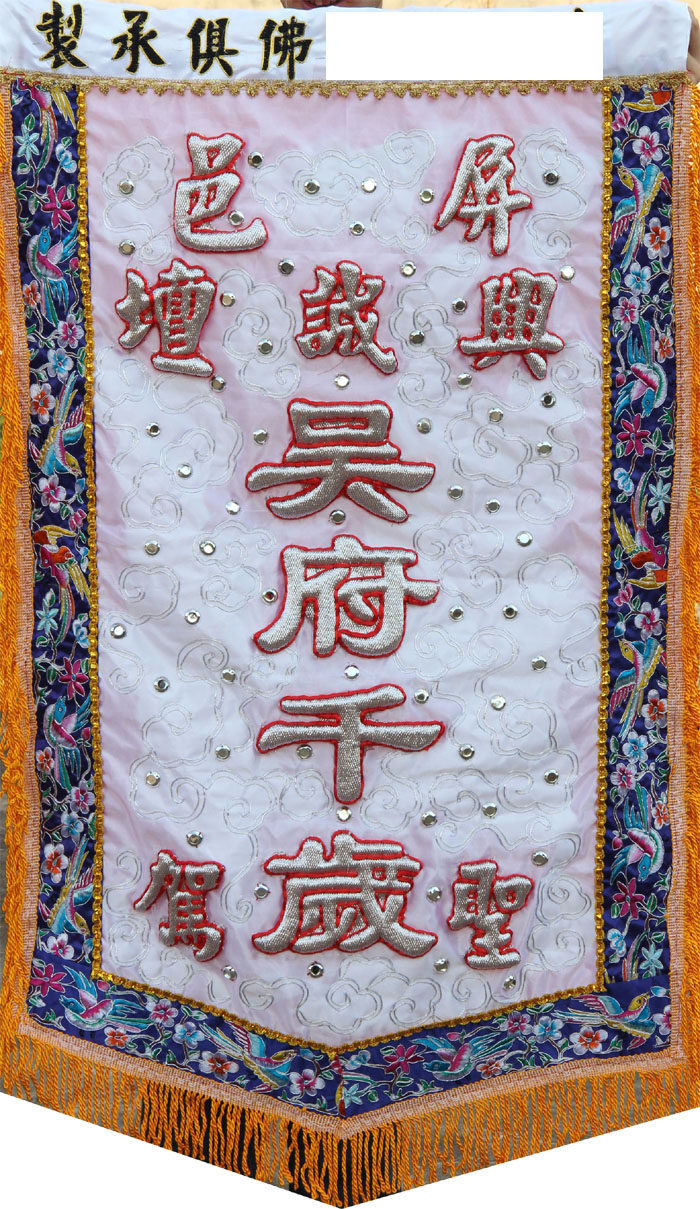 佛俱承製
屏邑
興誠壇
吳府千歲
聖駕